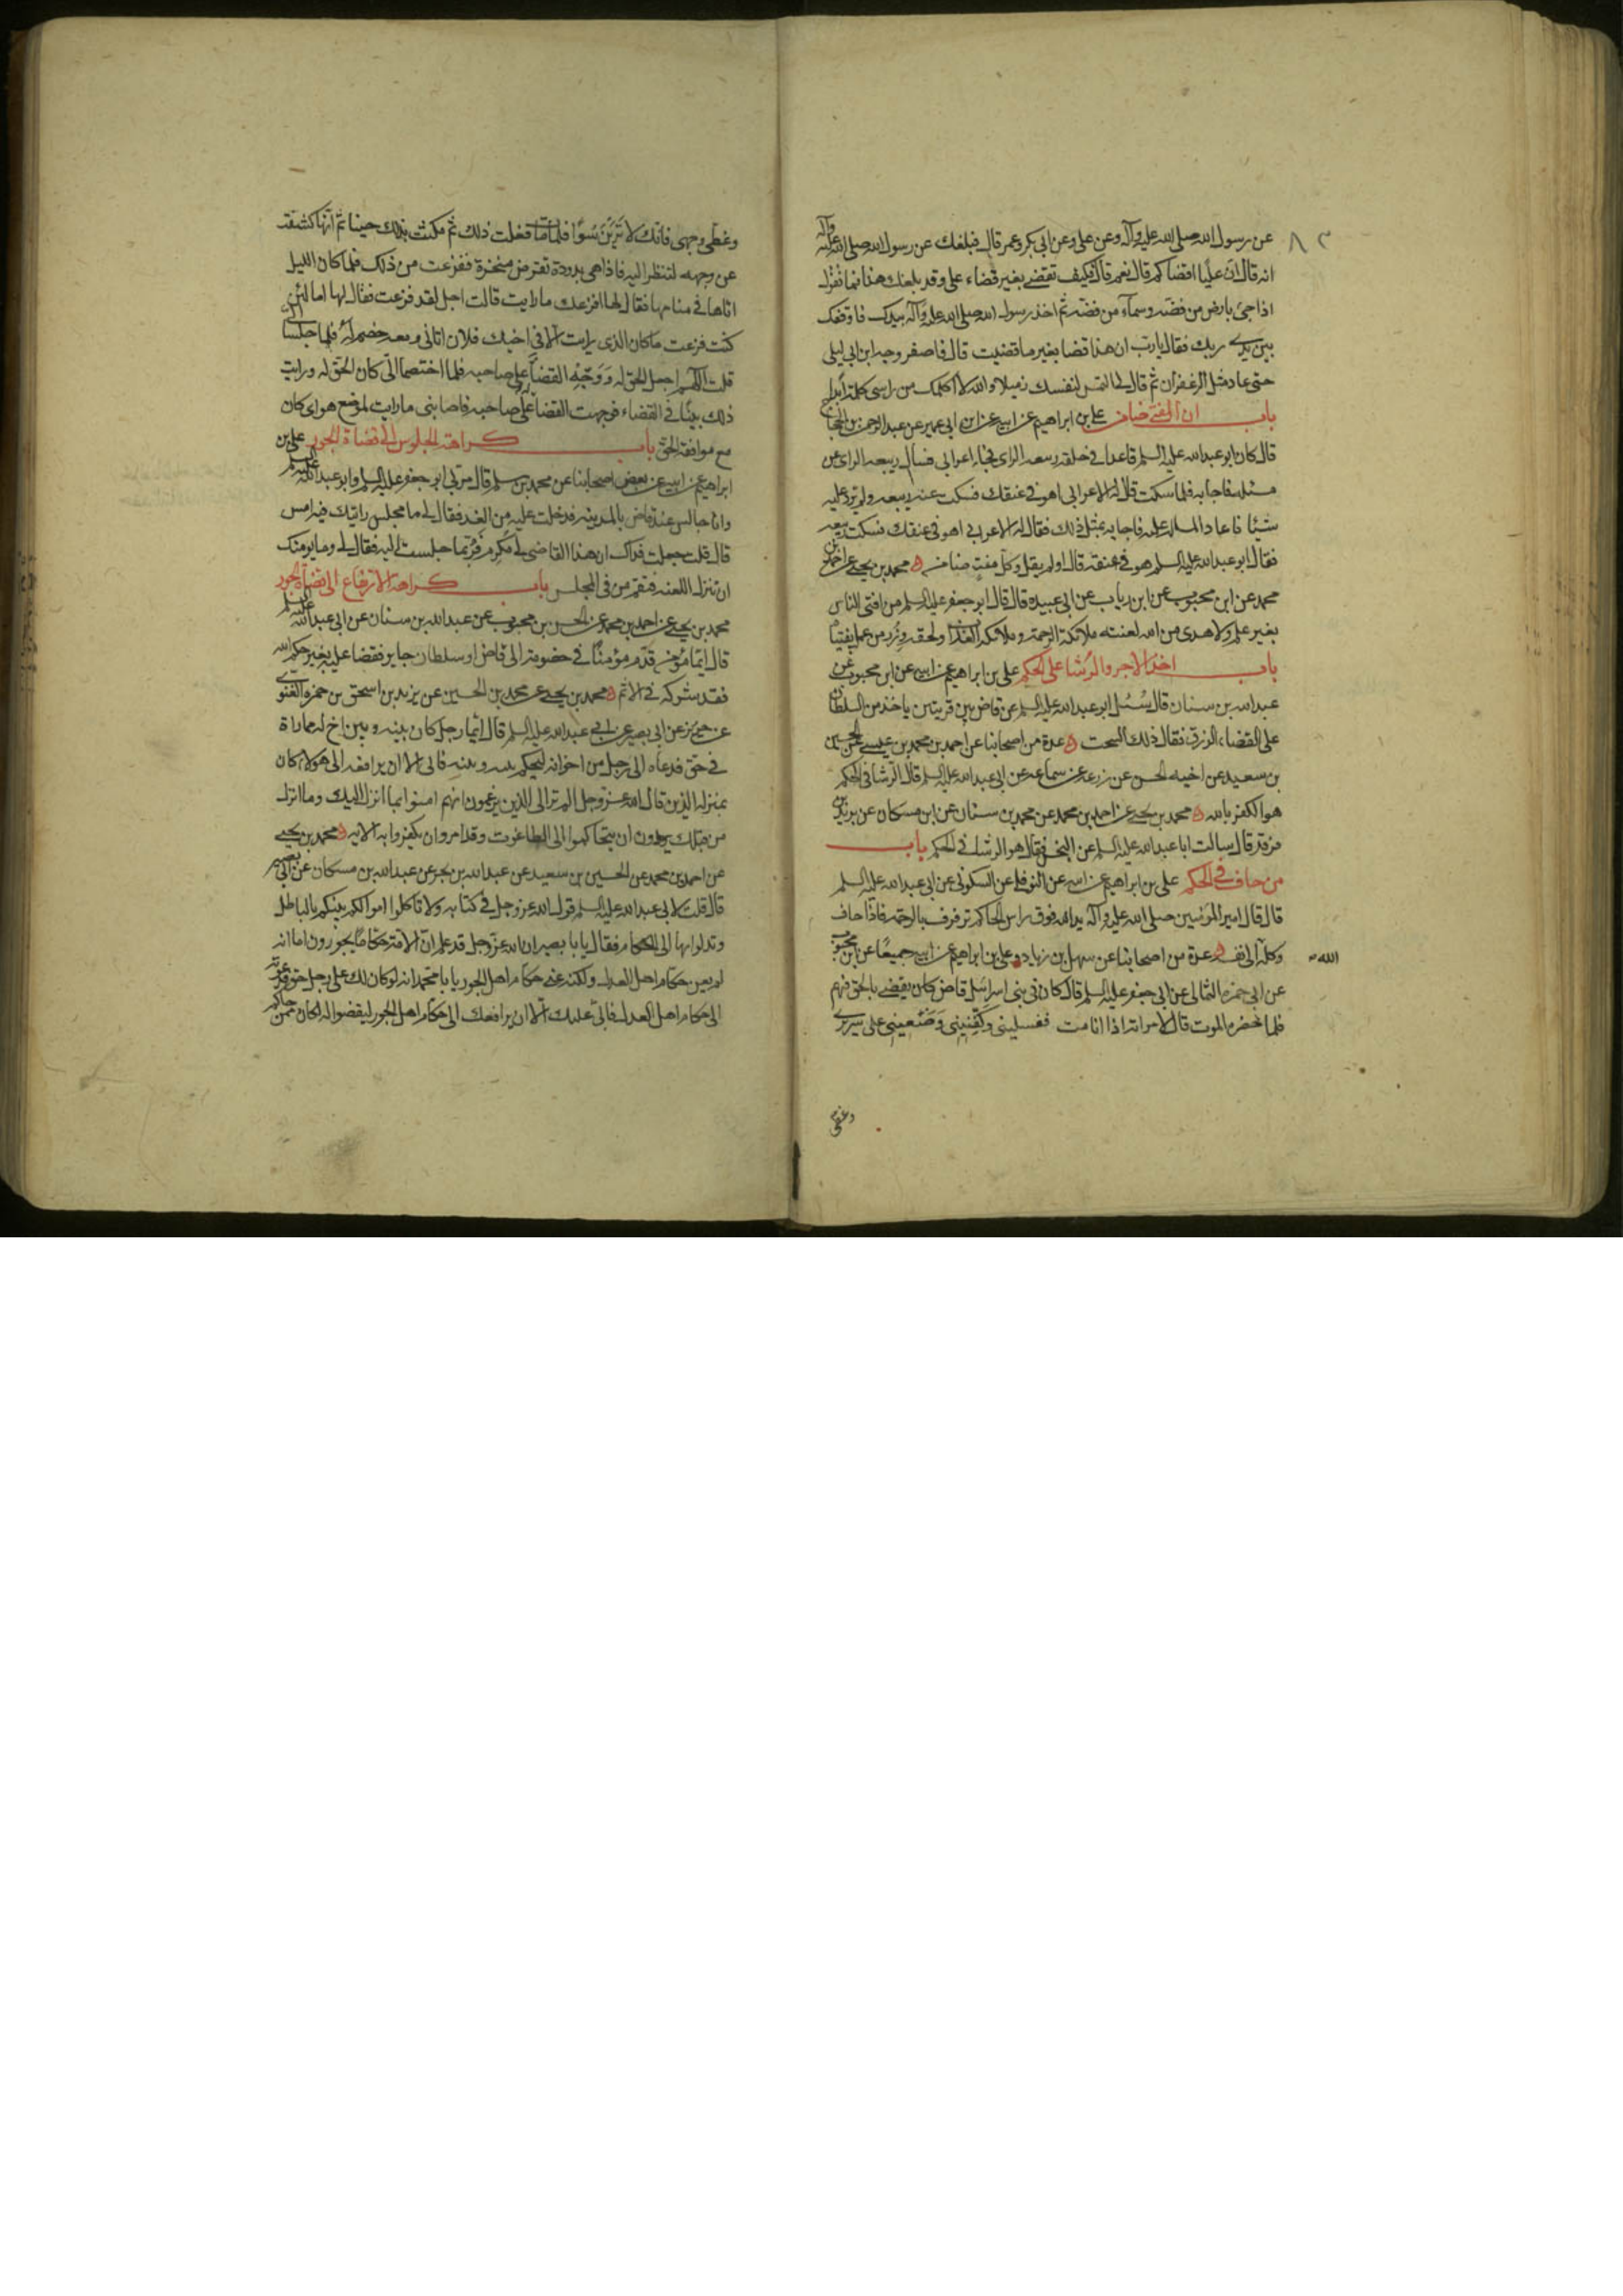 عن رسول الله صلى الله عليه وآله وعن علي وعن ابي بكر وعمر قال فبلغك عن رسول الله صلى الله عليه وآله
انه قال ان عليا اقضاكم قال نعم قال فكيف تقضي بغير قضاء علي وقد بلغك هذا فما تقول
اذا جئ بارض من فضة وسماء من فضة ثم اخذ رسول الله صلى الله عليه وآله بيدك فاوقفك
بين يدي ربك فقال يارب ان هذا قضا بغير ما قضيت قال فاصفر وجه ابن ابي ليلى
حتى عاد مثل الزعفران ثم قال لي التمس لنفسك زميلا والله لا اكلمك من راسي كلمة ابدا
باب ان المفتي ضامن علي بن ابراهيم عن ابيه عن ابن ابي عمير عن عبد الرحمن بن الحجاج
قال كان ابو عبد الله عليه السلم قاعدا في حلقه ربيعه الراى فجاء اعرابي فسأل ربيعه الراى عن
مسئله فاجابه فلما سكت قال له الاعرابي اهو في عنقك فسكت عنه ربيعه ولم يرد عليه
شيئا فاعاد المسله عليه فاجابه بمثل ذلك فقال له الاعرابي اهو في عنقك فسكت ربيعه
فقال ابو عبد الله عليه السلم هو في عنقه قال او لم يقل وكل مفت ضامن ه محمد بن يحيى عن احمد بن
محمد عن ابن محبوب عن ابن رياب عن ابي عبيده قال قال ابو جعفر عليه السلم من افتى الناس
بغير علم ولا هدى من الله لعنته ملائكة الرحمة وملائكه العذاب ولحقه وزر من عمل بفتياه
باب اخذ الاجر والرشا على الحكم علي بن ابراهيم عن ابيه عن ابن محبوب عن
عبد الله بن سنان قال سئل ابو عبد الله عليه السلم عن قاض بين قريتين ياخذ من السلطان
على القضاء الرزق فقال ذلك السحت ه عدة من اصحابنا عن احمد بن محمد بن عيسى عن الحسين
بن سعيد عن اخيه الحسن عن زرعه عن سماعه عن ابي عبد الله عليه السلم قال الرشا في الحكم
هو الكفر بالله ه محمد بن يحيى عن احمد بن محمد عن محمد بن سنان عن ابن مسكان عن يزيد بن
فرقد قال سالت ابا عبد الله عليه السلم عن البخس فقال هو الرشا في الحكم باب
من حاف في الحكم علي بن ابراهيم عن ابيه عن النوفلي عن السكوني عن ابي عبد الله عليه السلم
قال قال امير المؤمنين صلى الله عليه وآله يد الله فوق راس الحاكم ترفرف بالرحمه فاذا حاف
وكله الى نفسه ه عدة من اصحابنا عن سهل بن زياد وعلي بن ابراهيم عن ابيه جميعا عن ابن محبوب
الله
عن ابي حمزه الثمالي عن ابي جعفر عليه السلم قال كان في بني اسرائيل قاض كان يقضي بالحق فيهم
فلما حضره الموت قال لامراته اذا انا مت فغسليني وكفنيني وضعيني على سريري
وغطي
وغطي وجهي فانك لا ترين سوءا فلما مات فعلت ذلك ثم مكثت بذلك حينا ثم انها كشفت
عن وجهه لتنظر اليه فاذا هي بدودة تقرض منخره ففزعت من ذلك فلما كان الليل
اتاها في منامها فقال لها افزعك ما رايت قالت اجل لقد فزعت فقال لها اما لئن
كنت فزعت ما كان الذي رايت الا في اخيك فلان اتاني ومعه خصم له فلما جلسا الي
قلت اللهم اجعل الحق له ووجه القضا على صاحبه فلما اختصما الي كان الحق له ورايت
ذلك بينا في القضاء فوجهت القضا له على صاحبه فاصابني ما رايت لموضع هواى كان
مع موافقه الحق باب كراهة الجلوس الى قضاة الجور علي بن
ابراهيم عن ابيه عن بعض اصحابنا عن محمد بن مسلم قال مر بي ابو جعفر عليه السلم وابو عبد الله عليه السلم
وانا جالس عند قاض بالمدينه فدخلت عليه من الغد فقال لي ما مجلس رايتك فيه امس
قال قلت جعلت فداك ان هذا القاضي لي مكرم فربما جلست اليه فقال لي وما يومنك
ان تنزل اللعنه فتعم من في المجلس باب كراهة الارتفاع الى قضاة الجور
محمد بن يحيى عن احمد بن محمد عن الحسن بن محبوب عن عبد الله بن سنان عن ابي عبد الله عليه السلم
قال ايما مؤمن قدم مؤمنا في خصومة الى قاض او سلطان جاير فقضا عليه بغير حكم الله
فقد شركه في الاثم ه محمد بن يحيى عن محمد بن الحسين عن يزيد بن اسحق بن حمزه الغنوي
عن حريز عن ابي بصير عن ابي عبد الله عليه السلم قال ايما رجل كان بينه وبين اخ له مماراة
في حق فدعاه الى رجل من اخوانه ليحكم بينه وبينه فابى الا ان يرافعه الى هولاء كان
بمنزله الذين قال الله عز وجل الم تر الى الذين يزعمون انهم امنوا بما انزل اليك وما انزل
من قبلك يريدون ان يتحاكموا الى الطاغوت وقد امروا ان يكفروا به الايه ه محمد بن يحيى
عن احمد بن محمد عن الحسين بن سعيد عن عبد الله بن بحر عن عبد الله بن مسكان عن ابي بصير
قال قلت لابي عبد الله عليه السلم قول الله عز وجل في كتابه ولا تاكلوا اموالكم بينكم بالباطل
وتدلوا بها الى الحكام فقال يا با بصير ان الله عز وجل قد علم ان في الامة حكاما يجورون اما انه
لم يعن حكام اهل العدل ولكنه عنى حكام اهل الجور يا با محمد انه لو كان لك على رجل حق فدعوته
الى حكام اهل العدل فابى عليك الا ان يرافعك الى حكام اهل الجور ليقضوا له لكان ممن حاكم